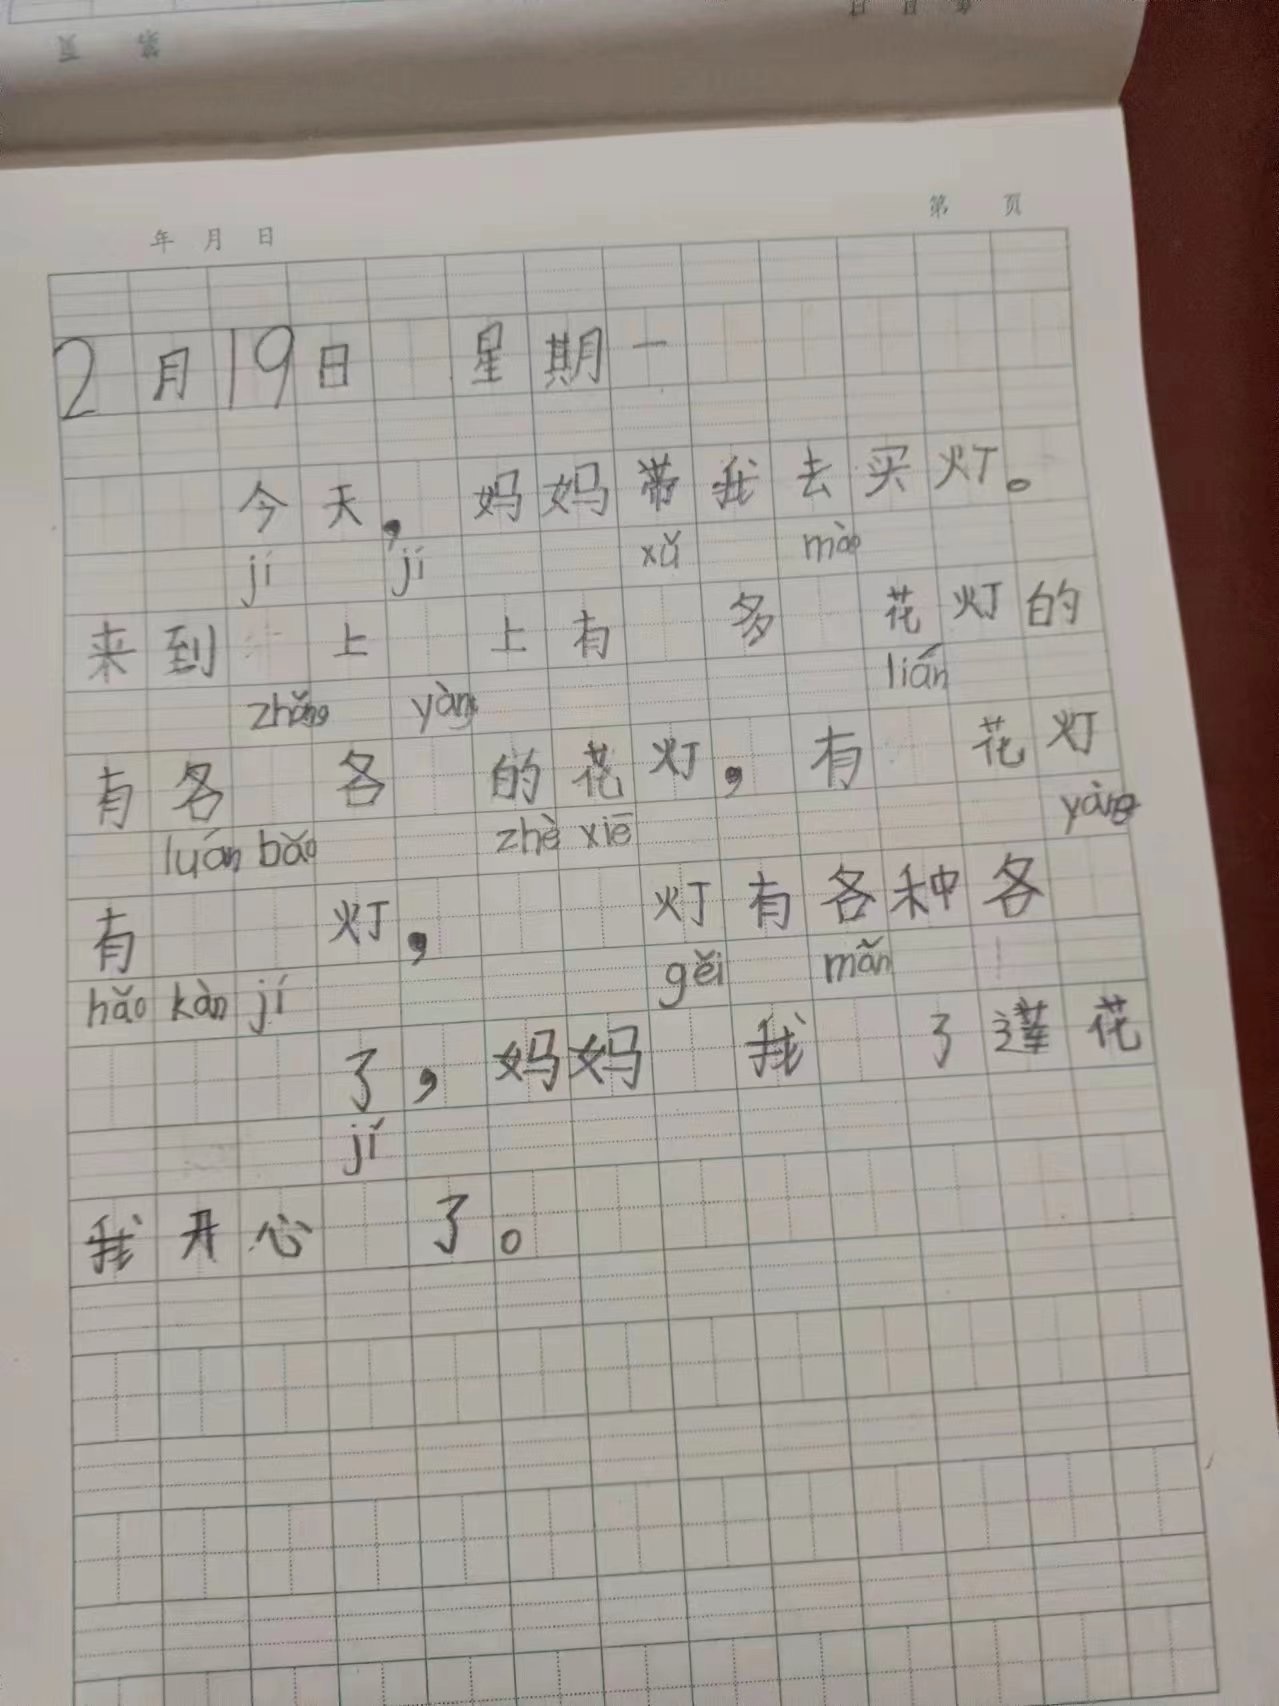 年 月 日 第 页
2月19日 星期一
今天，妈妈带我去买灯。
jí jí xǔ mào
来到 上 上有 多 花灯的
zhǒng yàng lián
有各 各 的花灯，有 花灯
luán bǎo zhè xiē yàng
有 灯， 灯有各种各
hǎo kàn jí gěi mǎn
了，妈妈 我 了莲花
jí
我开心 了。